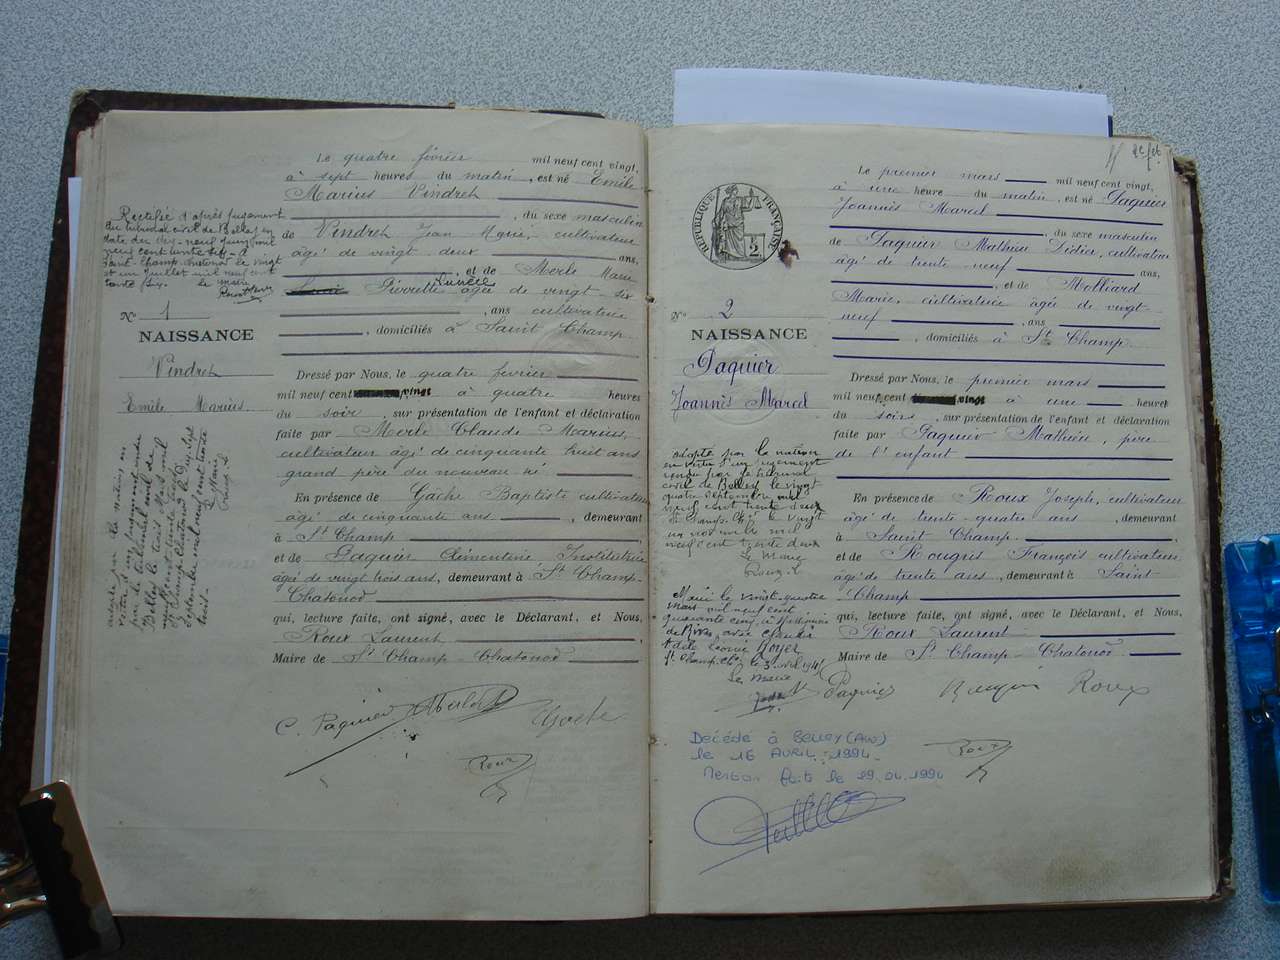 Le quatre février mil neuf cent vingt,
à sept heures du matin, est né Emile
Marius Vindret
, du sexe masculin
de Vindret Jean Marie, cultivateur
âgé de vingt deux ans,
et de Merle Marie
Pierrette âgée de vingt-six
ans cultivatrice
, domiciliés à Saint Champ
Dressé par Nous, le quatre février
mil neuf cent vingt à quatre heures
du soir, sur présentation de l'enfant et déclaration
faite par Merle Claude Marius,
cultivateur âgé de cinquante huit ans
grand père du nouveau né
En présence de Gâche Baptiste cultivateur
âgé de cinquante ans, demeurant
à St Champ
et de Paquier Clémentine Institutrice
âgée de vingt trois ans, demeurant à St Champ-
Chatonod
qui, lecture faite, ont signé, avec le Déclarant, et Nous,
Roux Laurent
Maire de St Champ-Chatonod
Rectifié d'après jugement
du tribunal civil de Belley en
date du dix-neuf juin mil
neuf cent trente six - A
Saint-Champ-Chatonod le vingt
et un juillet mil neuf cent
trente six. Le maire
No 1
NAISSANCE
Vindret
Emile Marius
C. Paquier
Gache
Roux
Le premier mars mil neuf cent vingt,
à une heure du matin, est né Paquier
Joannès Marcel
, du sexe masculin
de Paquier Mathieu Didier, cultivateur
âgé de trente neuf ans,
, et de Molliard
Marie, cultivatrice âgée de vingt
neuf, ans
, domiciliés à St Champ
Dressé par Nous, le premier mars
mil neuf cent vingt à une heure
du soir, sur présentation de l'enfant et déclaration
faite par Paquier Mathieu, père
de l'enfant
En présence de Roux Joseph, cultivateur
âgé de trente-quatre ans, demeurant
à Saint Champ
et de Rougris François cultivateur
âgé de trente ans, demeurant à Saint
Champ
qui, lecture faite, ont signé, avec le Déclarant, et Nous,
Roux Laurent
Maire de St Champ-Chatonod
RÉPUBLIQUE FRANÇAISE
2
No 2
NAISSANCE
Paquier
Joannès Marcel
adopté par la nation
en vertu d'un jugement
rendu par le tribunal
civil de Belley le vingt
quatre septembre mil
neuf cent trente deux
St Champ Ch. le vingt
un novembre mil
neuf cent trente deux
Le Maire
Roux L
Marié le vingt-quatre
mars mil neuf cent
quarante cinq à
de Rives avec
Léonie Royer
St Champ Ch. le 3 avril 1945
Le Maire
Paquier
Rougris
Roux
Roux
Décédé à BELLEY (Ain)
le 16 AVRIL 1994.
Mention faite le 19.04.1994